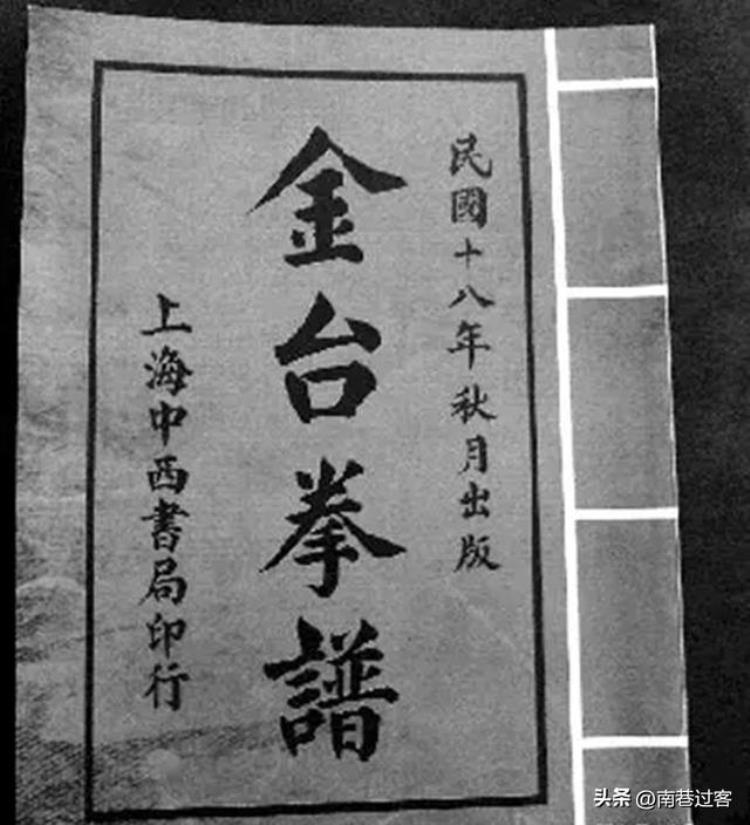 民國十八年秋月出版
金台拳譜
上海中西書局印行
头条 @南巷过客